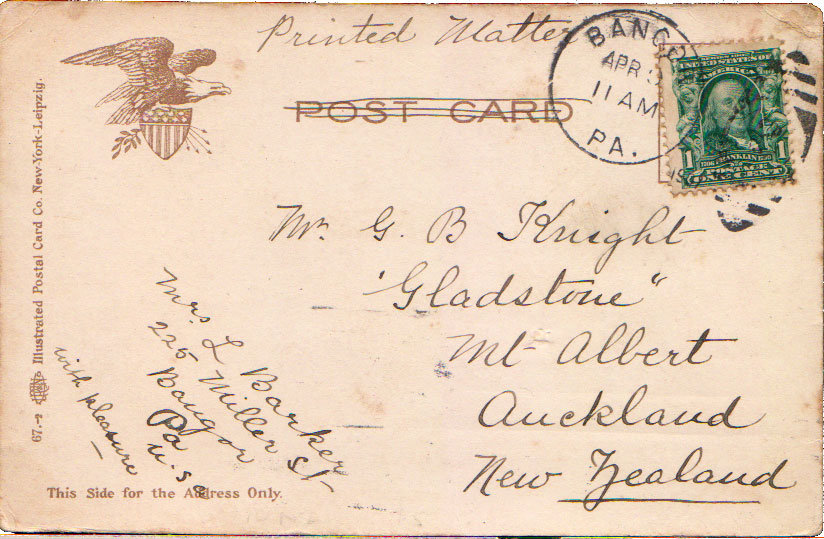 Printed Matter
POST CARD
BANGO
APR
11 AM
PA.
UNITED STATES OF
AMERICA
1 1
1706 FRANKLIN 1790
POSTAGE
ONE CENT
Mr. G. B Knight
"Gladstone"
Mt Albert
Auckland
New Zealand
Mrs L Barker
225 Miller St
Bangor
Pa
U.S.a
with pleasure
67.-2 Illustrated Postal Card Co. New-York-Leipzig.
This Side for the Address Only.